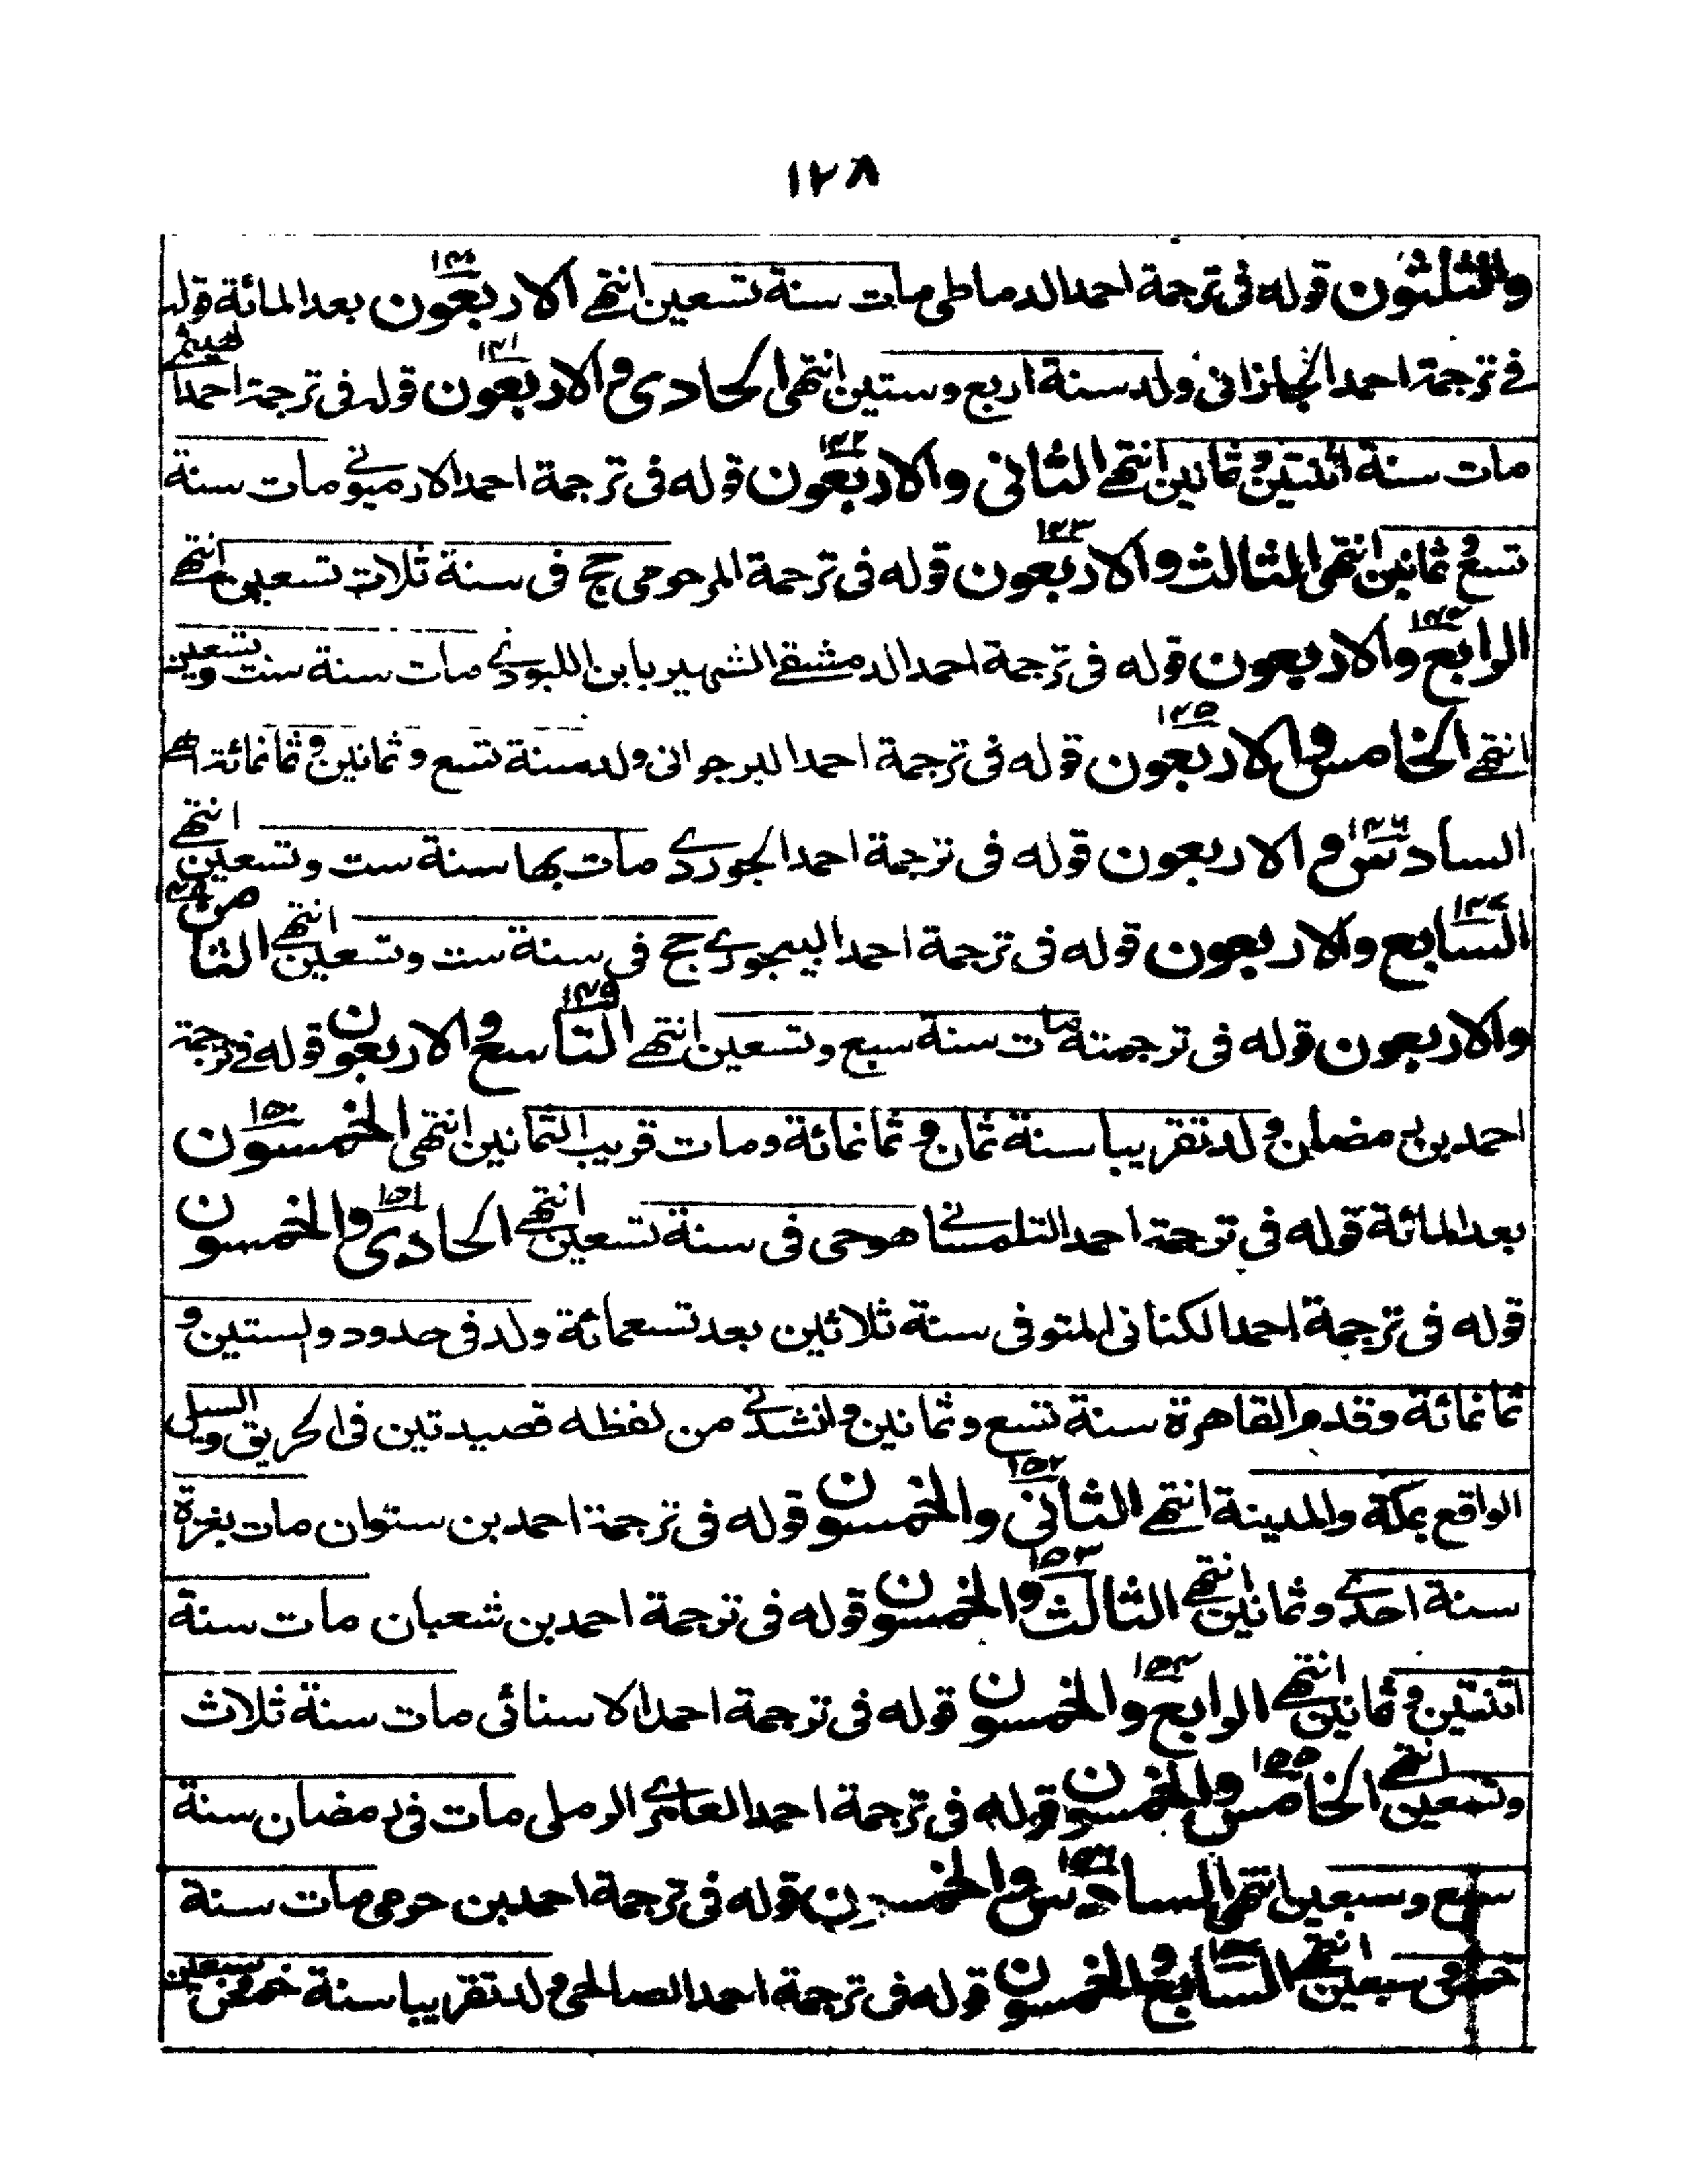 ١٢٨
والثلثون قوله في ترجمة احمد الدماطي مات سنة تسعين انتهى الاربعون ١٤٠ بعد المائة قوله
في ترجمة احمد ولد سنة اربع وستين انتهى الحادى والاربعون ١٤١ قوله فى ترجمة احمد
مات سنة اثنتين وثمانين انتهى الثانى والاربعون ١٤٢ قوله فى ترجمة احمد الارميونى مات سنة
تسع وثمانين انتهى الثالث والاربعون ١٤٣ قوله فى ترجمة المرحومى حج فى سنة ثلاث تسعين انتهى
الرابع والاربعون ١٤٤ قوله فى ترجمة احمد الدمشقي الشهير بابن اللبودى مات سنة ست وتسعين
انتهى الخامس والاربعون ١٤٥ قوله فى ترجمة احمد البرجوانى ولد سنة تسع وثمانين وثمانمائة اه
السادس والاربعون ١٤٦ قوله فى ترجمة احمد الجوردى مات بها سنة ست وتسعين انتهى
السابع والاربعون ١٤٧ قوله فى ترجمة احمد البيجورى حج فى سنة ست وتسعين انتهى الثامن ١٤٨
والاربعون قوله فى ترجمته مات سنة سبع وتسعين انتهى التاسع والاربعون ١٤٩ قوله فى ترجمة
احمد بن رمضان ولد تقريبا سنة ثمان وثمانمائة ومات قريب الثمانين انتهى الخمسون ١٥٠
بعد المائة قوله فى ترجمة احمد التلمسانى هو حى فى سنة تسعين انتهى الحادى والخمسون ١٥١
قوله فى ترجمة احمد الكنانى المتوفى سنة ثلاثين بعد تسعمائة ولد فى حدود الستين و
ثمانمائة وقدم القاهرة سنة تسع وثمانين وانشدنى من لفظه قصيدتين فى الحريق والسيل
الواقع بمكة والمدينة انتهى الثانى والخمسون ١٥٢ قوله فى ترجمة احمد بن ستوان مات بغزة
سنة احدى وثمانين انتهى الثالث والخمسون ١٥٣ قوله فى ترجمة احمد بن شعبان مات سنة
اثنتين وثمانين انتهى الرابع والخمسون ١٥٤ قوله فى ترجمة احمد الاسنائى مات سنة ثلاث
وتسعين انتهى الخامس والخمسون ١٥٥ قوله فى ترجمة احمد العامرى الرملى مات فى رمضان سنة
سبع وسبعين انتهى السادس والخمسون ١٥٦ قوله فى ترجمة احمد بن حرمى مات سنة
سبعين انتهى السابع والخمسون ١٥٧ قوله فى ترجمة احمد الصالحى ولد تقريبا سنة خمس وسبعين